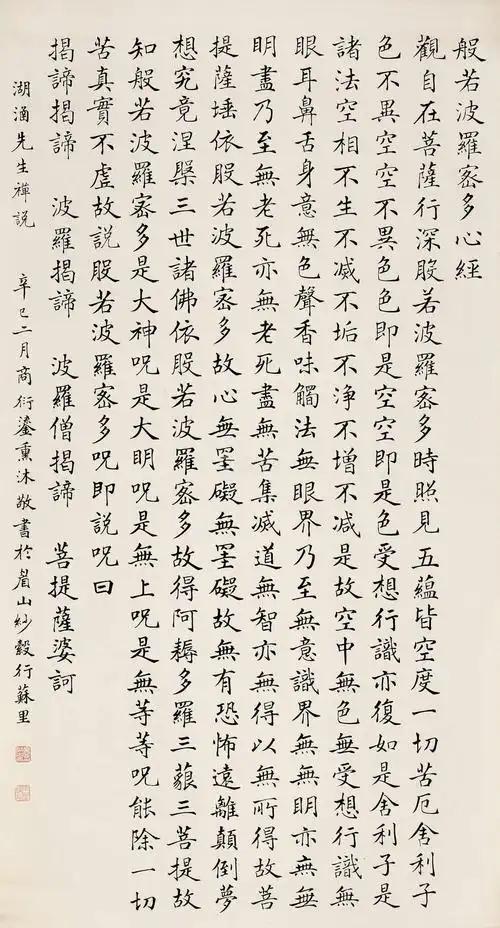 般若波羅密多心經
觀自在菩薩行深般若波羅密多時照見五蘊皆空度一切苦厄舍利子
色不異空空不異色色即是空空即是色受想行識亦復如是舍利子是
諸法空相不生不滅不垢不淨不增不減是故空中無色無受想行識無
眼耳鼻舌身意無色聲香味觸法無眼界乃至無意識界無無明亦無無
明盡乃至無老死亦無老死盡無苦集滅道無智亦無得以無所得故菩
提薩埵依般若波羅密多故心無罣礙無罣礙故無有恐怖遠離顛倒夢
想究竟涅槃三世諸佛依般若波羅密多故得阿耨多羅三藐三菩提故
知般若波羅密多是大神呪是大明呪是無上呪是無等等呪能除一切
苦真實不虛故説般若波羅密多呪即説呪曰
揭諦揭諦 波羅揭諦 波羅僧揭諦 菩提薩婆訶
湖涵先生禪説 辛巳二月商衍鎏熏沐敬書於眉山紗縠行蘇里